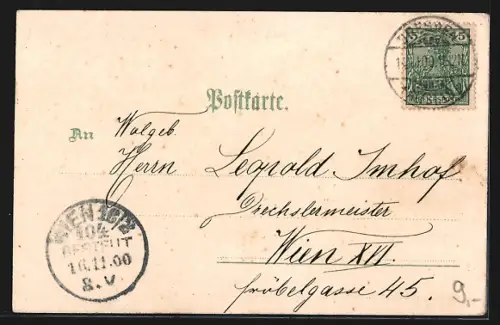 Postkarte.
An Wolgeb.
Herrn Leopold Imhof
Drechslermeister
Wien XVI.
Fröbelgasse 45.
9,-
WIEN 16/2
BESTELLT
16.11.00
8.V